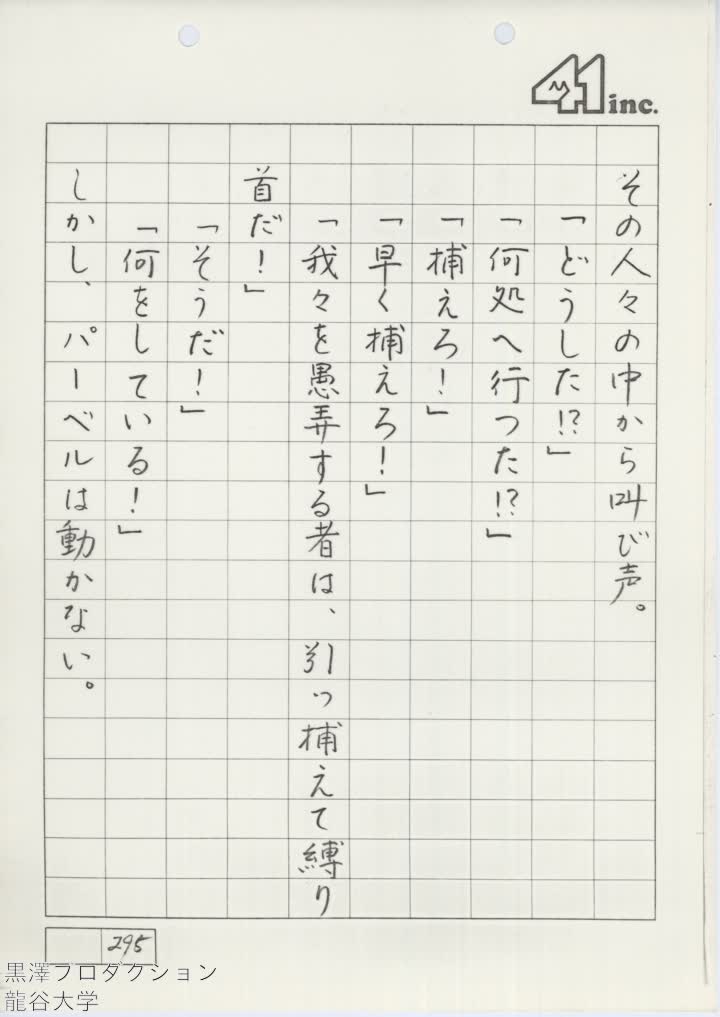 41 inc.
その人々の中から叫び声。
「どうした!?」
「何処へ行つた!?」
「捕えろ!」
「早く捕えろ!」
「我々を愚弄する者は、引っ捕えて縛り
首だ!」
「そうだ!」
「何をしている!」
しかし、パーベルは動かない。
295
黒澤プロダクション
龍谷大学